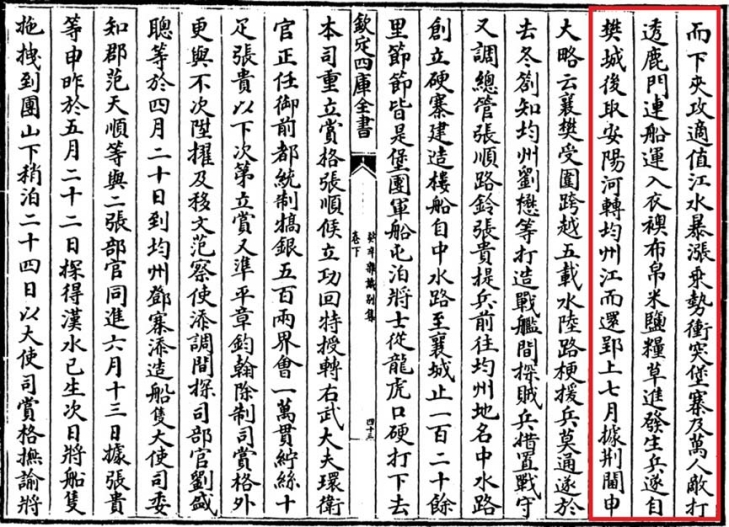 而下夾攻適值江水暴漲乘勢衝突堡寨及萬人敵打
透鹿門連船運入衣襖布帛米鹽糧草進發生兵遂自
樊城後取安陽河轉均州江而還郢上七月據荆閫申
大略云襄樊受圍跨越五載水陸路梗援兵莫通遂於
去冬劄知均州劉懋等打造戰艦間探賊兵措置戰守
又調總管張順路鈐張貴提兵前往均州地名中水路
創立硬寨建造樓船自中水路至襄城止一百二十餘
里節節皆是堡團軍船屯泊將士從龍虎口硬打下去
欽定四庫全書
癸辛雜識别集
卷下
四十三
本司重立賞格張順候立功回特授轉右武大夫環衛
官正任御前都統制犒銀五百兩界會一萬貫紵絲十
疋張貴以下次第立賞又準平章鈞翰除制司賞格外
更與不次陞擢及移文范察使添調間探司部官劉盛
聰等於四月二十日到均州鄧寨添造船隻大使司委
知郡范天順等與二張部官同進六月十三日據張貴
等申昨於五月二十二日探得漢水已生次日將船隻
拖拽到團山下稍泊二十四日以大使司賞格撫諭將